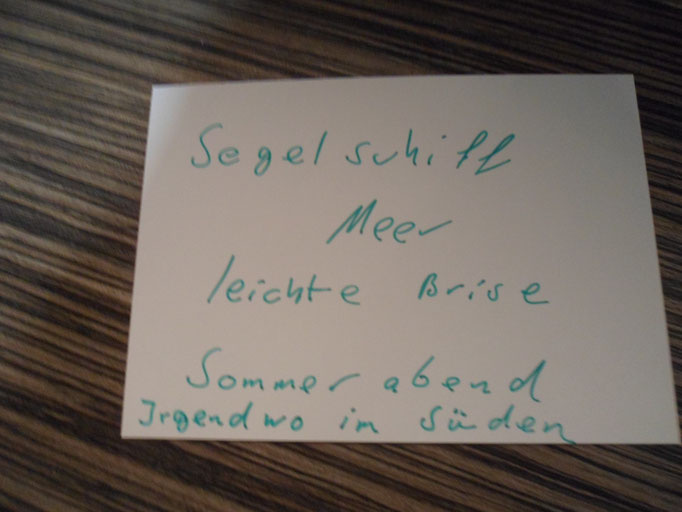 Segelschiff
Meer
leichte Brise
Sommerabend
Irgendwo im Süden